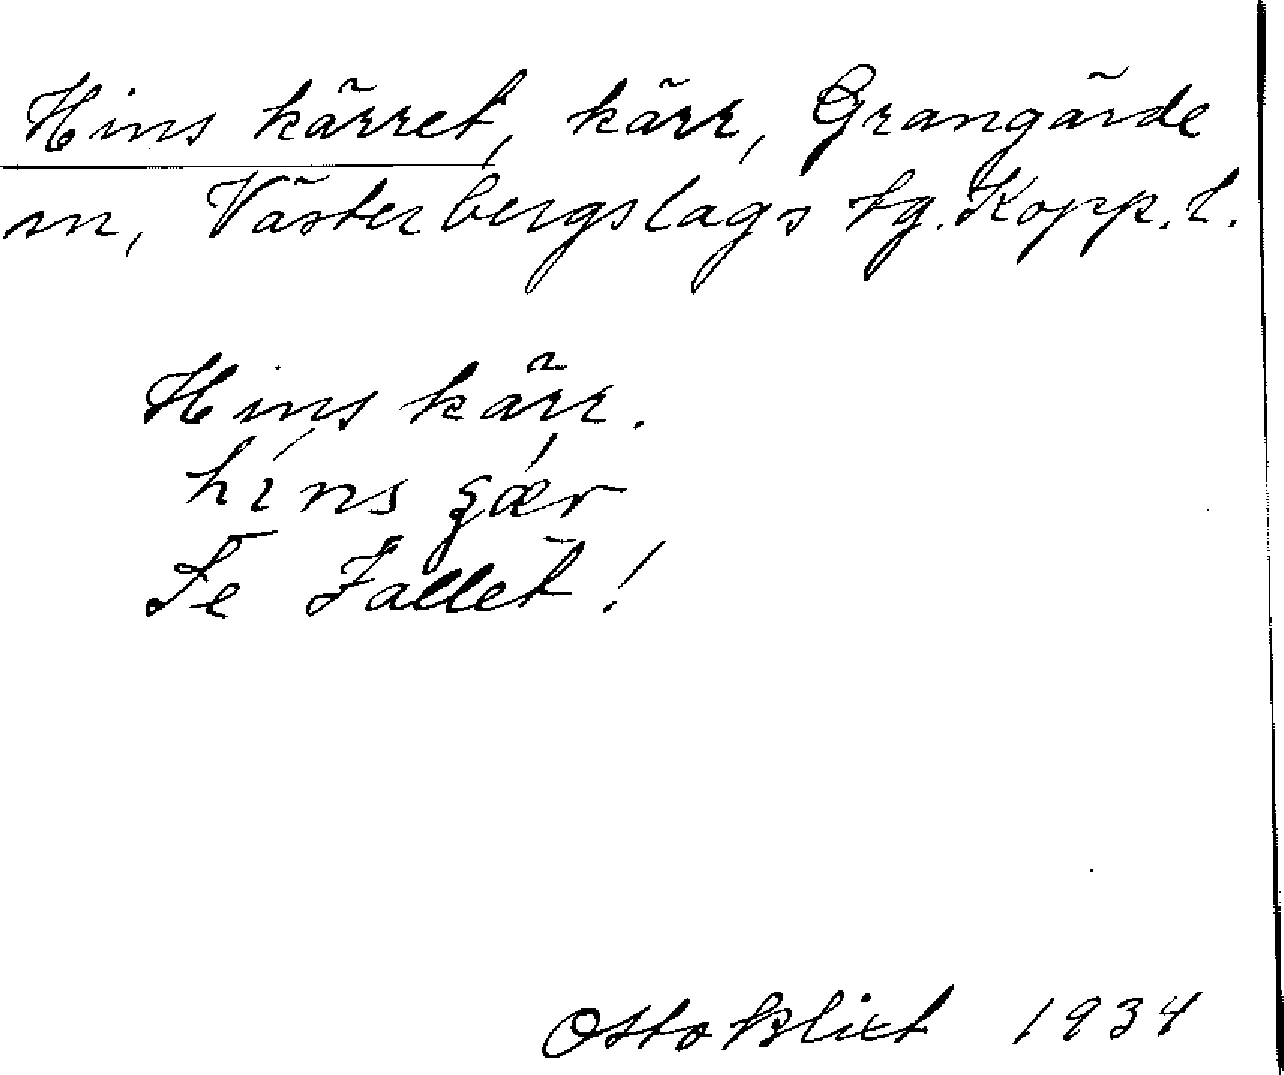 Hins kärret, kärr, Grangärde
sn, Västerbergslags tg. Kopp. l.
Hins kärr.
híns gǽr
Se Fallet!
Otto Blixt 1934